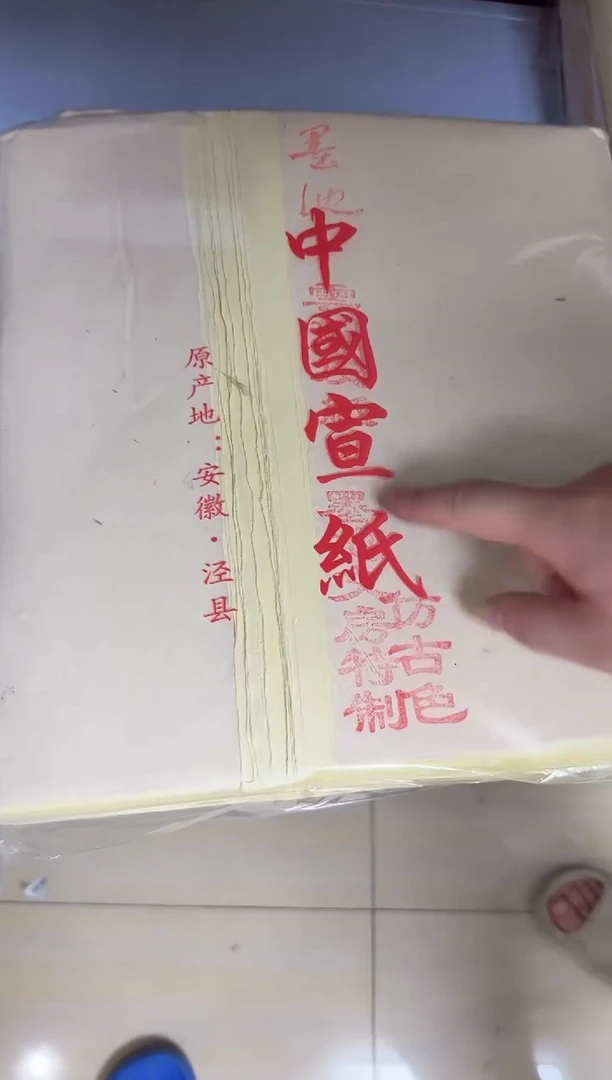 墨池
中國宣紙
仿古色
居特制
原产地：安徽·泾县